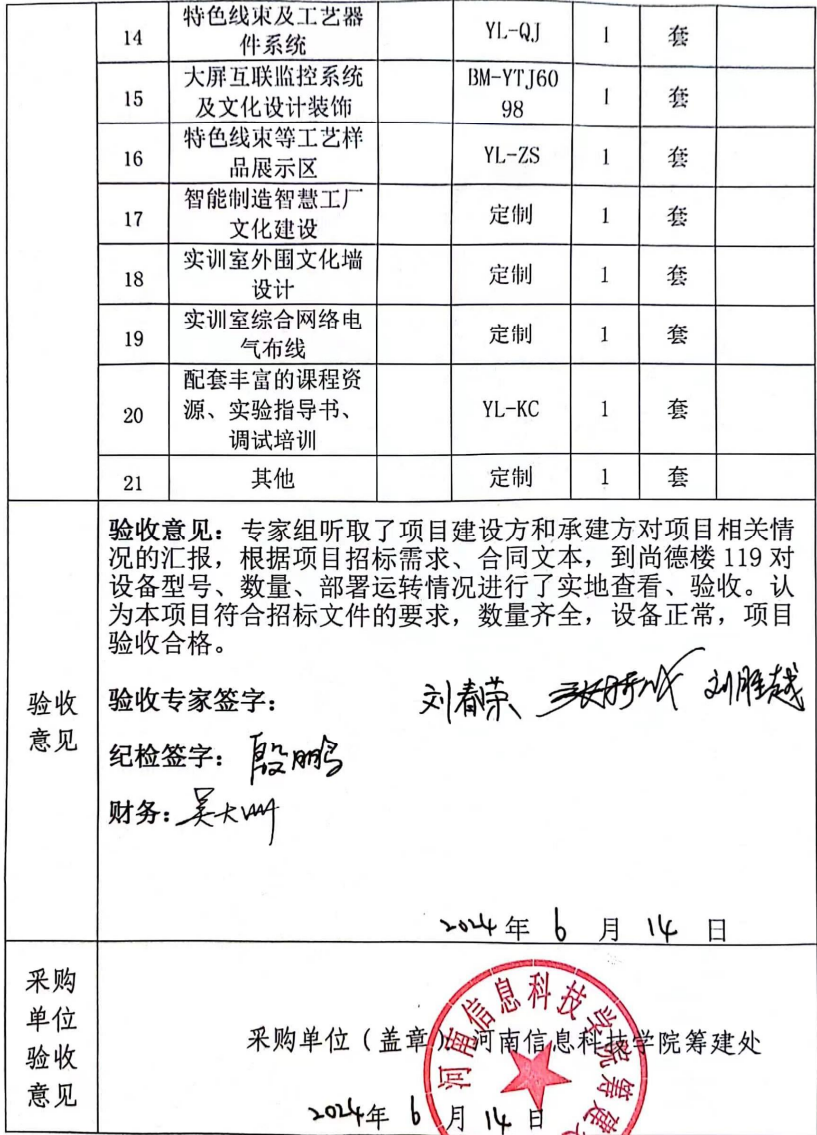 14 特色线束及工艺器 YL-QJ 1 套
件系统
15 大屏互联监控系统 BM-YTJ60 1 套
及文化设计装饰 98
16 特色线束等工艺样 YL-ZS 1 套
品展示区
17 智能制造智慧工厂 定制 1 套
文化建设
18 实训室外围文化墙 定制 1 套
设计
19 实训室综合网络电 定制 1 套
气布线
20 配套丰富的课程资 YL-KC 1 套
源、实验指导书、
调试培训
21 其他 定制 1 套
验收
意见
验收意见：专家组听取了项目建设方和承建方对项目相关情
况的汇报，根据项目招标需求、合同文本，到尚德楼 119 对
设备型号、数量、部署运转情况进行了实地查看、验收。认
为本项目符合招标文件的要求，数量齐全，设备正常，项目
验收合格。
验收专家签字： 刘春荣 刘胜越
纪检签字：殷鹏
财务：吴大州
2024年 6 月 14 日
采购
单位
验收
意见
采购单位（盖章）河南信息科技学院筹建处
2024年 6 月 14 日
河南信息科技学院筹建